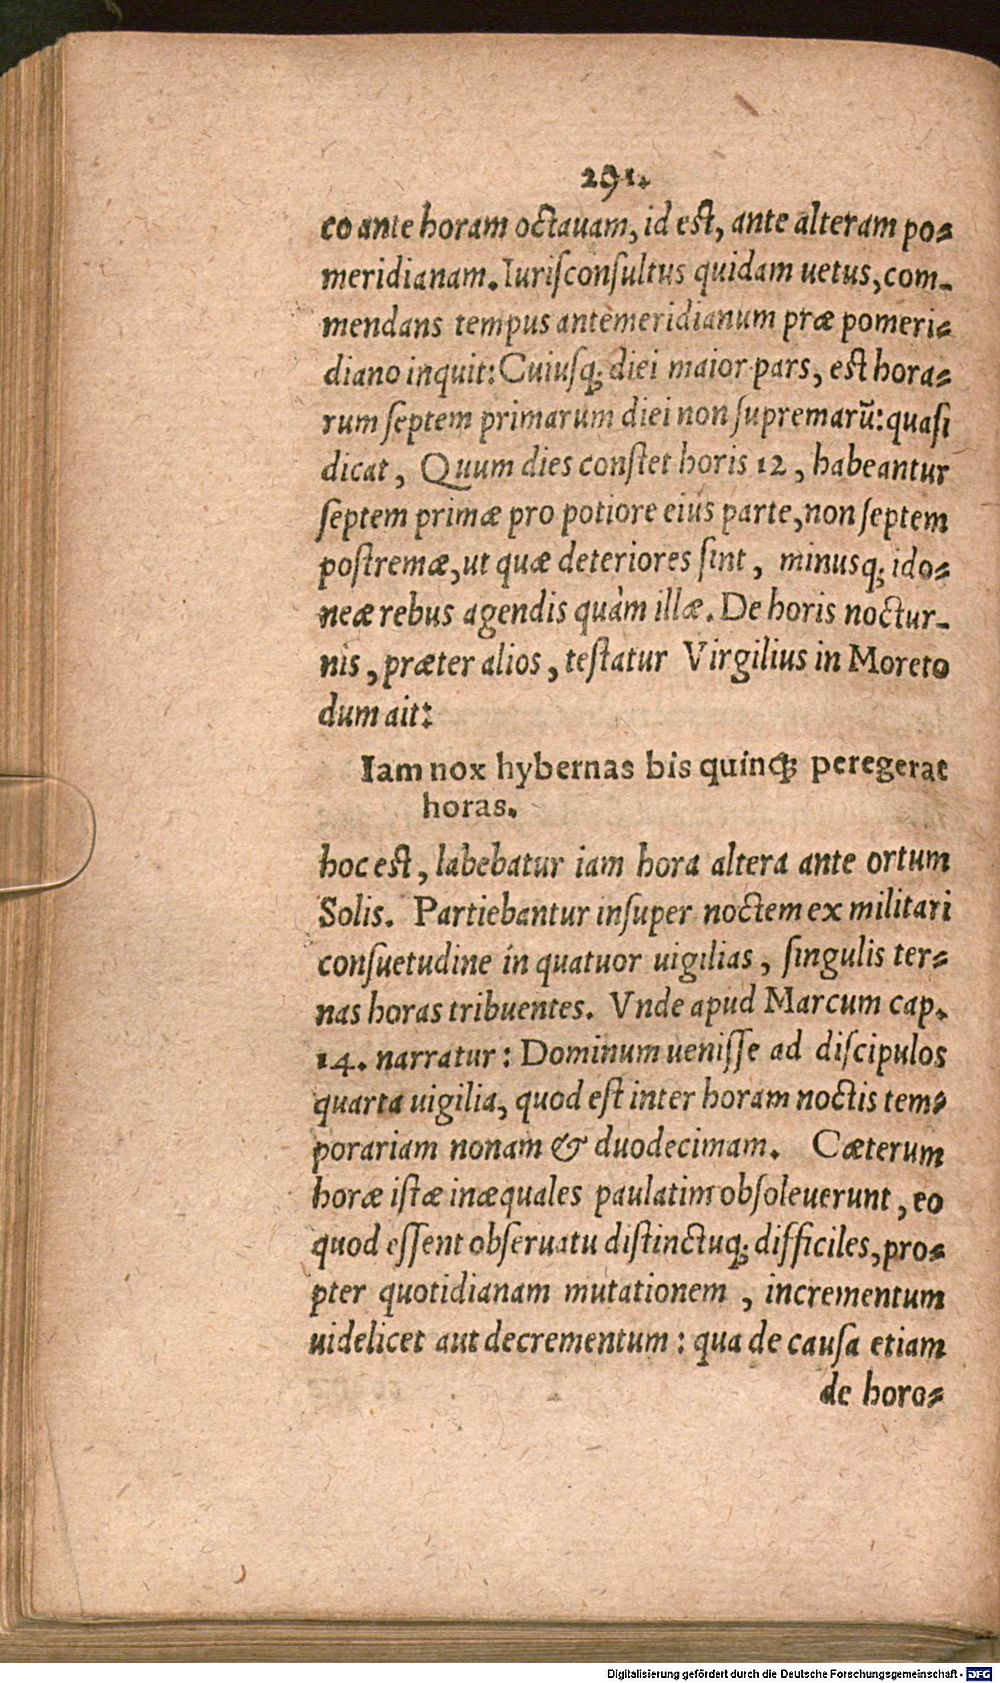 291.
co ante horam octauam, id est, ante alteram po⸗
meridianam. Iurisconsultus quidam uetus, com-
mendans tempus antemeridianum præ pomeri⸗
diano inquit: Cuiusq; diei maior pars, est hora⸗
rum septem primarum diei non supremarũ: quasi
dicat, Quum dies constet horis 12, habeantur
septem primæ pro potiore eius parte, non septem
postremæ, ut quæ deteriores sint, minusq; ido⸗
neæ rebus agendis quàm illæ. De horis noctur-
nis, præter alios, testatur Virgilius in Moreto
dum ait:
Iam nox hybernas bis quinq; peregerat
horas.
hoc est, labebatur iam hora altera ante ortum
Solis. Partiebantur insuper noctem ex militari
consuetudine in quatuor uigilias, singulis ter⸗
nas horas tribuentes. Vnde apud Marcum cap.
14. narratur: Dominum uenisse ad discipulos
quarta uigilia, quod est inter horam noctis tem⸗
porariam nonam & duodecimam. Cæterum
horæ istæ inæquales paulatim obsoleuerunt, eo
quod essent obseruatu distinctuq; difficiles, pro⸗
pter quotidianam mutationem, incrementum
uidelicet aut decrementum: qua de causa etiam
de horo⸗
Digitalisierung gefördert durch die Deutsche Forschungsgemeinschaft - DFG